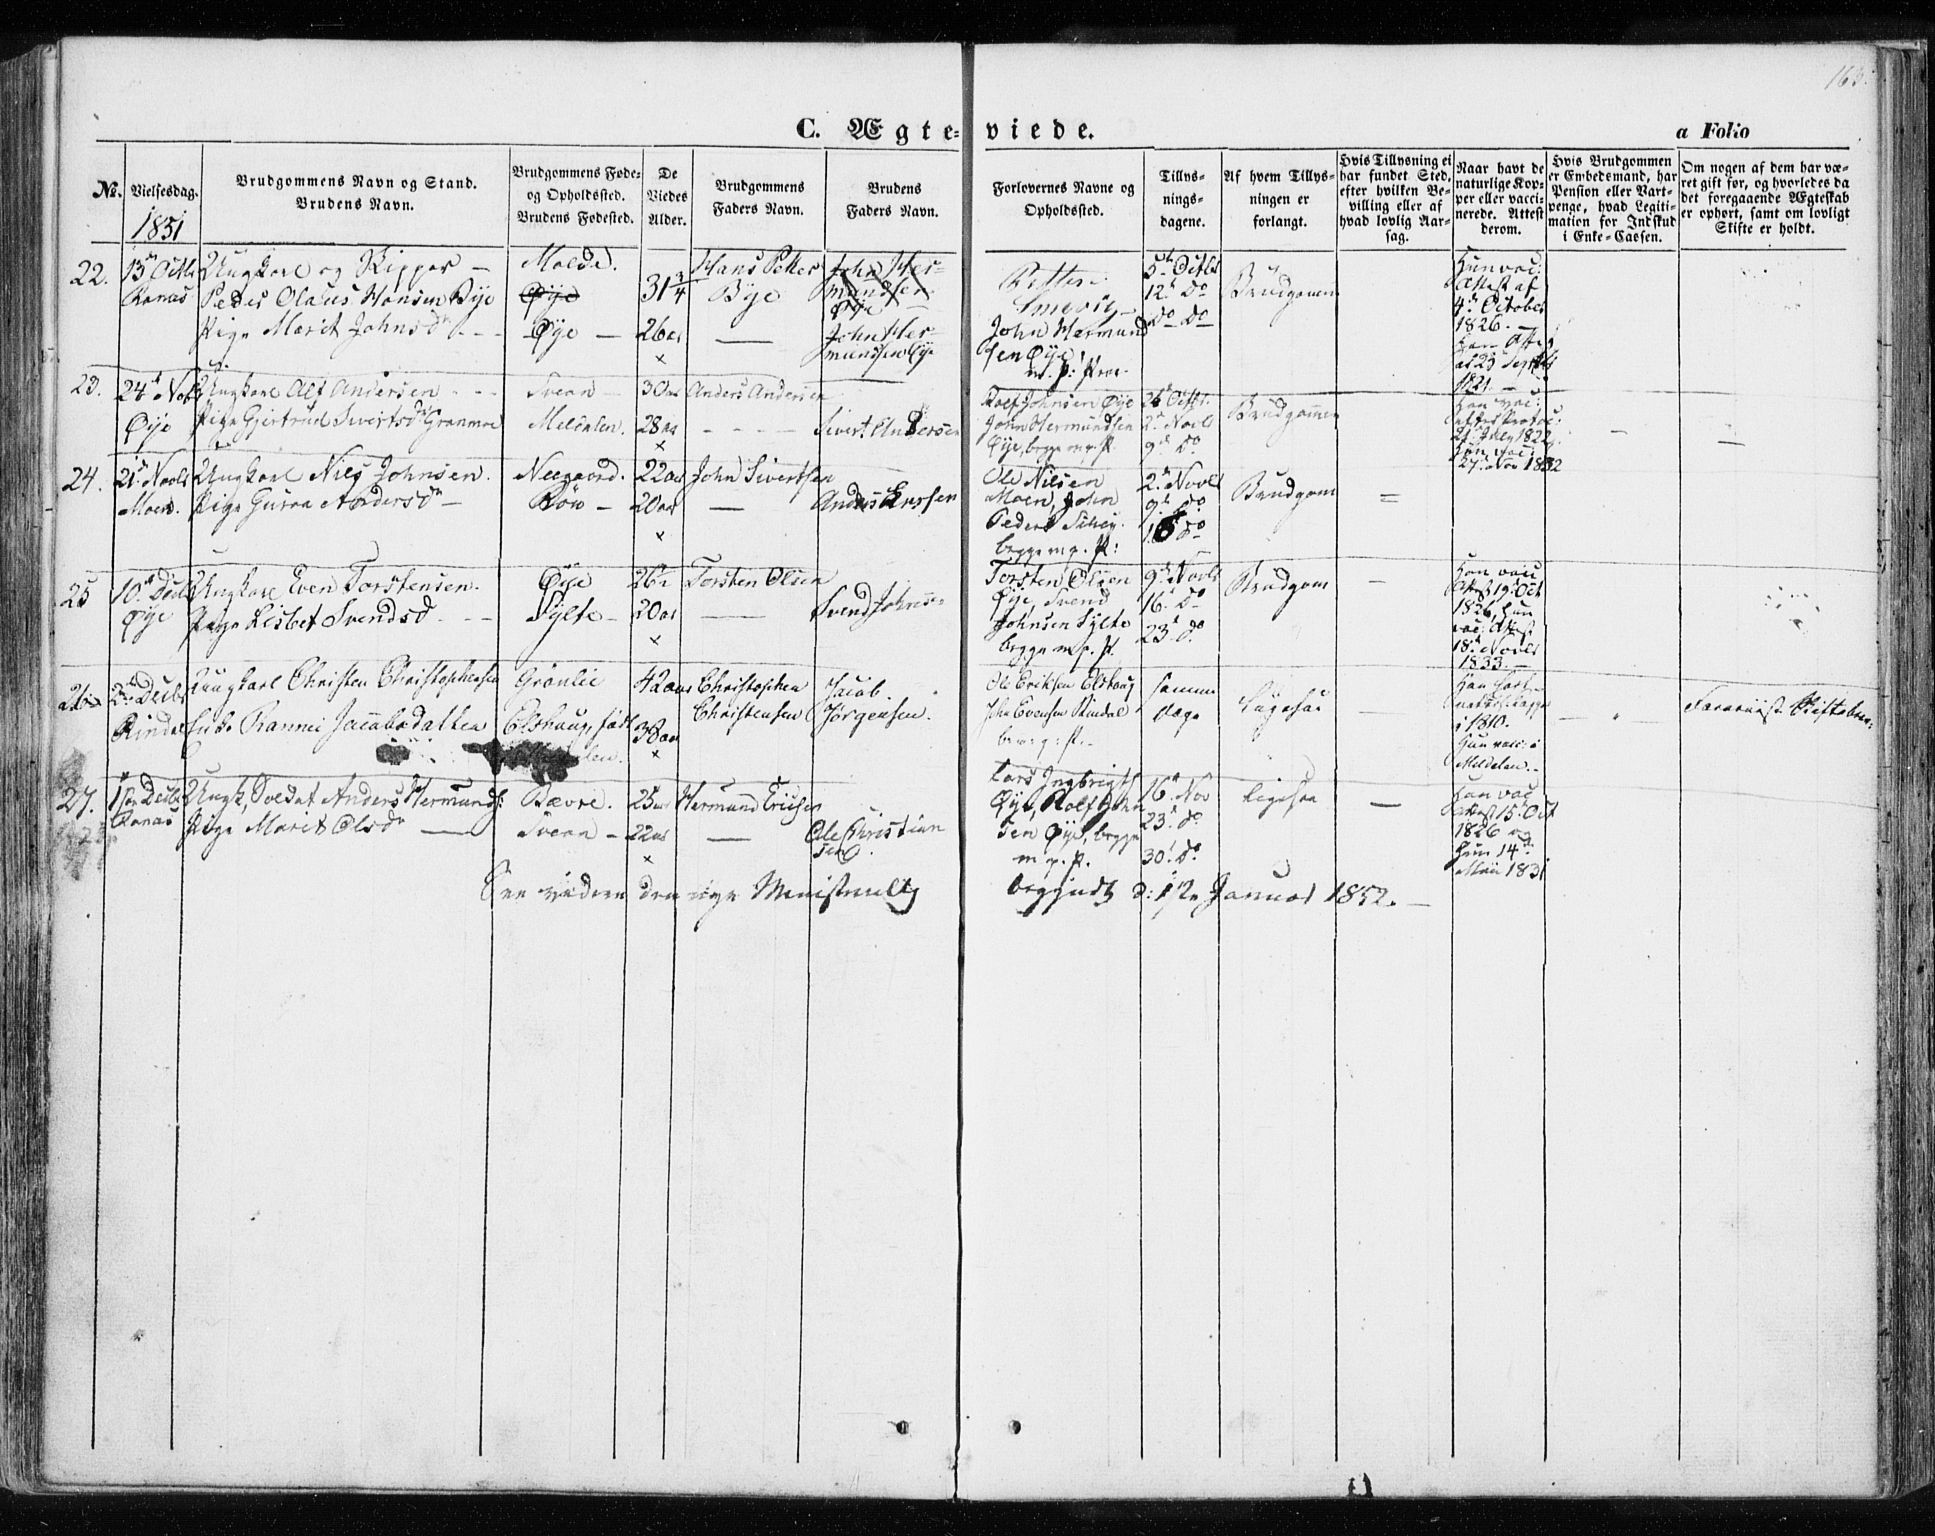 C. Ægte-viede.
a Folio
No.
Vielsesdag.
1851
Brudgommens Navn og Stand.
Brudens Navn.
Brudgommens Føde-
og Opholdssted.
Brudens Fødested.
De
Viedes
Alder.
Brudgommens
Faders Navn.
Brudens
Faders Navn.
Forlovernes Navne og
Opholdssted.
Tillys-
nings-
dagene.
Af hvem Tillys-
ningen er
forlangt.
Hvis Tillysning ei
har fundet Sted,
efter hvilken Be-
villing eller af
hvad lovlig Aar-
sag.
Naar havt de
naturlige Kop-
per eller vacci-
nerede. Attest
derom.
Hvis Brudgommen
er Embedsmand, har
Pension eller Vart-
penge, hvad Legiti-
mation for Indskud
i Enke-Cassen.
Om nogen af dem har væ-
ret gift før, og hvorledes da
det foregaaende Ægteskab
er ophørt, samt om lovligt
Skifte er holdt.
22.
Ranæs
Ungkarl og Skipper
Peder Olaus Hansen Bye
Pige Marit Johnsdr
Molde.
Øye
Øye
31 3/4
26 aar
Hans Petter
Bye
John Her-
mundsen
Øye
John Her-
mundsen Øye
Petter
John Hermund
sen Øye
5te Octbr
12te Do
Do Do
Brudgommen
Hun vac:
Attest af
4de October
1826.
af 23 Septbr
1821
23.
24de Novb
Øye
Ungkarl Alf Andersen
Pige Gjertrud Sivertsdr Granmoe
Svean
Meldalen.
30 aar
28 aar
Anders Andersen
Sivert Andersen
Rolf Johnsen Øye
John Hermundsen
Øye, begge m. p. P.
26 Octbr.
2den Novbr
9de Do
Brudgommen
Han vac:
21 July 1822
Hun vac:
27. Nov 1832
24.
21de Novbr
Moen.
Ungkarl Niels Johnsen.
Pige Guroe Andersdr
Neegaard.
Røv
22 aar
20 aar
John Sivertsen
Anders Larsen
Ole Nilsen
Moen, John
Peders
begge m. p. P:
2den Novbr
9de Do
16de Do
Brudgom
25
10de Decb
Øye
Ungkarl Even Torstensen.
Pige Lisbet Svendsd
Øye
Sylte
26 aar
20 aar
Torsten Olsen
Svend Johnsen
Torsten Olsen
Øye, Svend
Johnsen Sylte
begge m. p. P.
9de Novbr
16de Do
23de Do
Brudgom
Han vac
Attest 19. Oct
1826, Hun
vac: Attest
18de Novbr
1833.
26
Rindal
Ungkarl Christen Christophersen
Enke Rannei Jacobsdatter
Grønlie
Elshaug, født
42 aar
38 aar
Christopher
Christensen
Jacob
Jørgensen.
Ole Eriksen Elshaug
John Evensen Rindal
samme
Dage
Ligesaa
i 1810.
Hun vac: i
Meldalen.
27.
Decbr
Ranæs
Ungk, Soldat Anders Hermunds:
Pige Marit Olsdr
Bævre.
Svean
25 aar
22 aar
Hermund Ericsen
Ole Christian
sen.
Lars Ingbrigts
Øye, Rolf John
sen Øye, begge
m. p. P.
16de Nov
23de Do
30te Do
ligesaa
Han vac
Attest 15de Oct
1826 og
Hun 14de
Mai 1831
See videre den nye Ministerialbog
begyndt d: 1/2 Januar 1852.